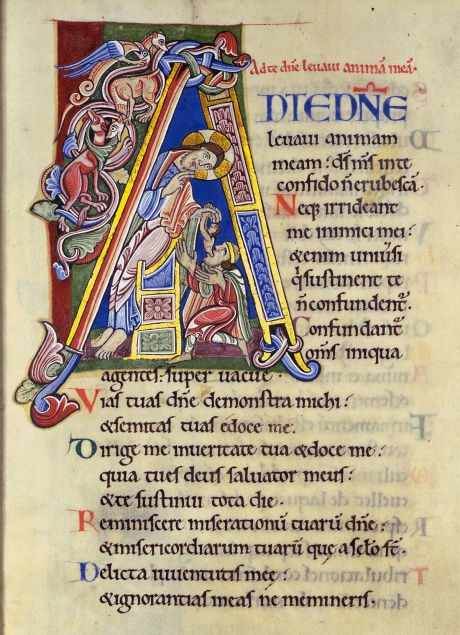 Ad te dn̄e leuaui animā meā.
ADTE DN̄E
leuaui animam
meam: dſ mſ inte
confido n̄ erubeſcā.
Neq; irrideant
me inimici mei:
&enim uniuſi
q̇ſuſtinent te
n̄ confundent᷑.
Confundant᷑
om̄ſ iniqua
agenteſ: ſuper uacue.
Viaſ tuaſ dn̄e demonſtra michi:
&ſemitaſ tuaſ edoce me.
Dirige me inueritate tua &doce me:
quia tueſ deuſ ſaluator meuſ:
&te ſuſtinui tota die.
Reminiſcere miſerationū tuarū dn̄e:
&miſericordiarum tuarū que aſcl̄o ſt̄.
Delicta iuuentutiſ meę:
&ignorantiaſ meaſ ne memineriſ.